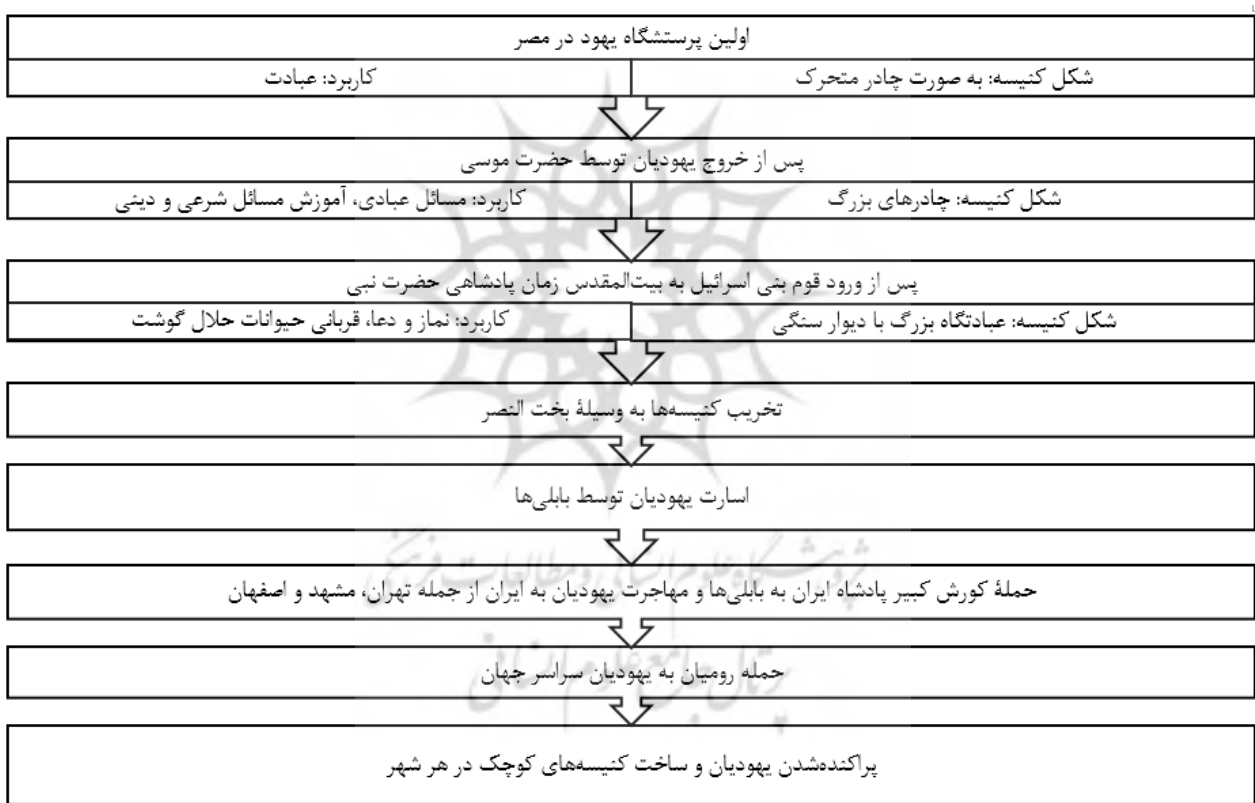 اولین پرستشگاه یهود در مصر
شکل کنیسه: به صورت چادر متحرک
کاربرد: عبادت
پس از خروج یهودیان توسط حضرت موسی
شکل کنیسه: چادرهای بزرگ
کاربرد: مسائل عبادی، آموزش مسائل شرعی و دینی
پس از ورود قوم بنی اسرائیل به بیت‌المقدس زمان پادشاهی حضرت نبی
شکل کنیسه: عبادتگاه بزرگ با دیوار سنگی
کاربرد: نماز و دعا، قربانی حیوانات حلال گوشت
تخریب کنیسه‌ها به وسیلهٔ بخت النصر
اسارت یهودیان توسط بابلی‌ها
پژوهشگاه علوم انسانی و مطالعات فرهنگی
حملهٔ کورش کبیر پادشاه ایران به بابلی‌ها و مهاجرت یهودیان به ایران از جمله تهران، مشهد و اصفهان
پرتال جامع علوم انسانی
حمله رومیان به یهودیان سراسر جهان
پراکنده‌شدن یهودیان و ساخت کنیسه‌های کوچک در هر شهر